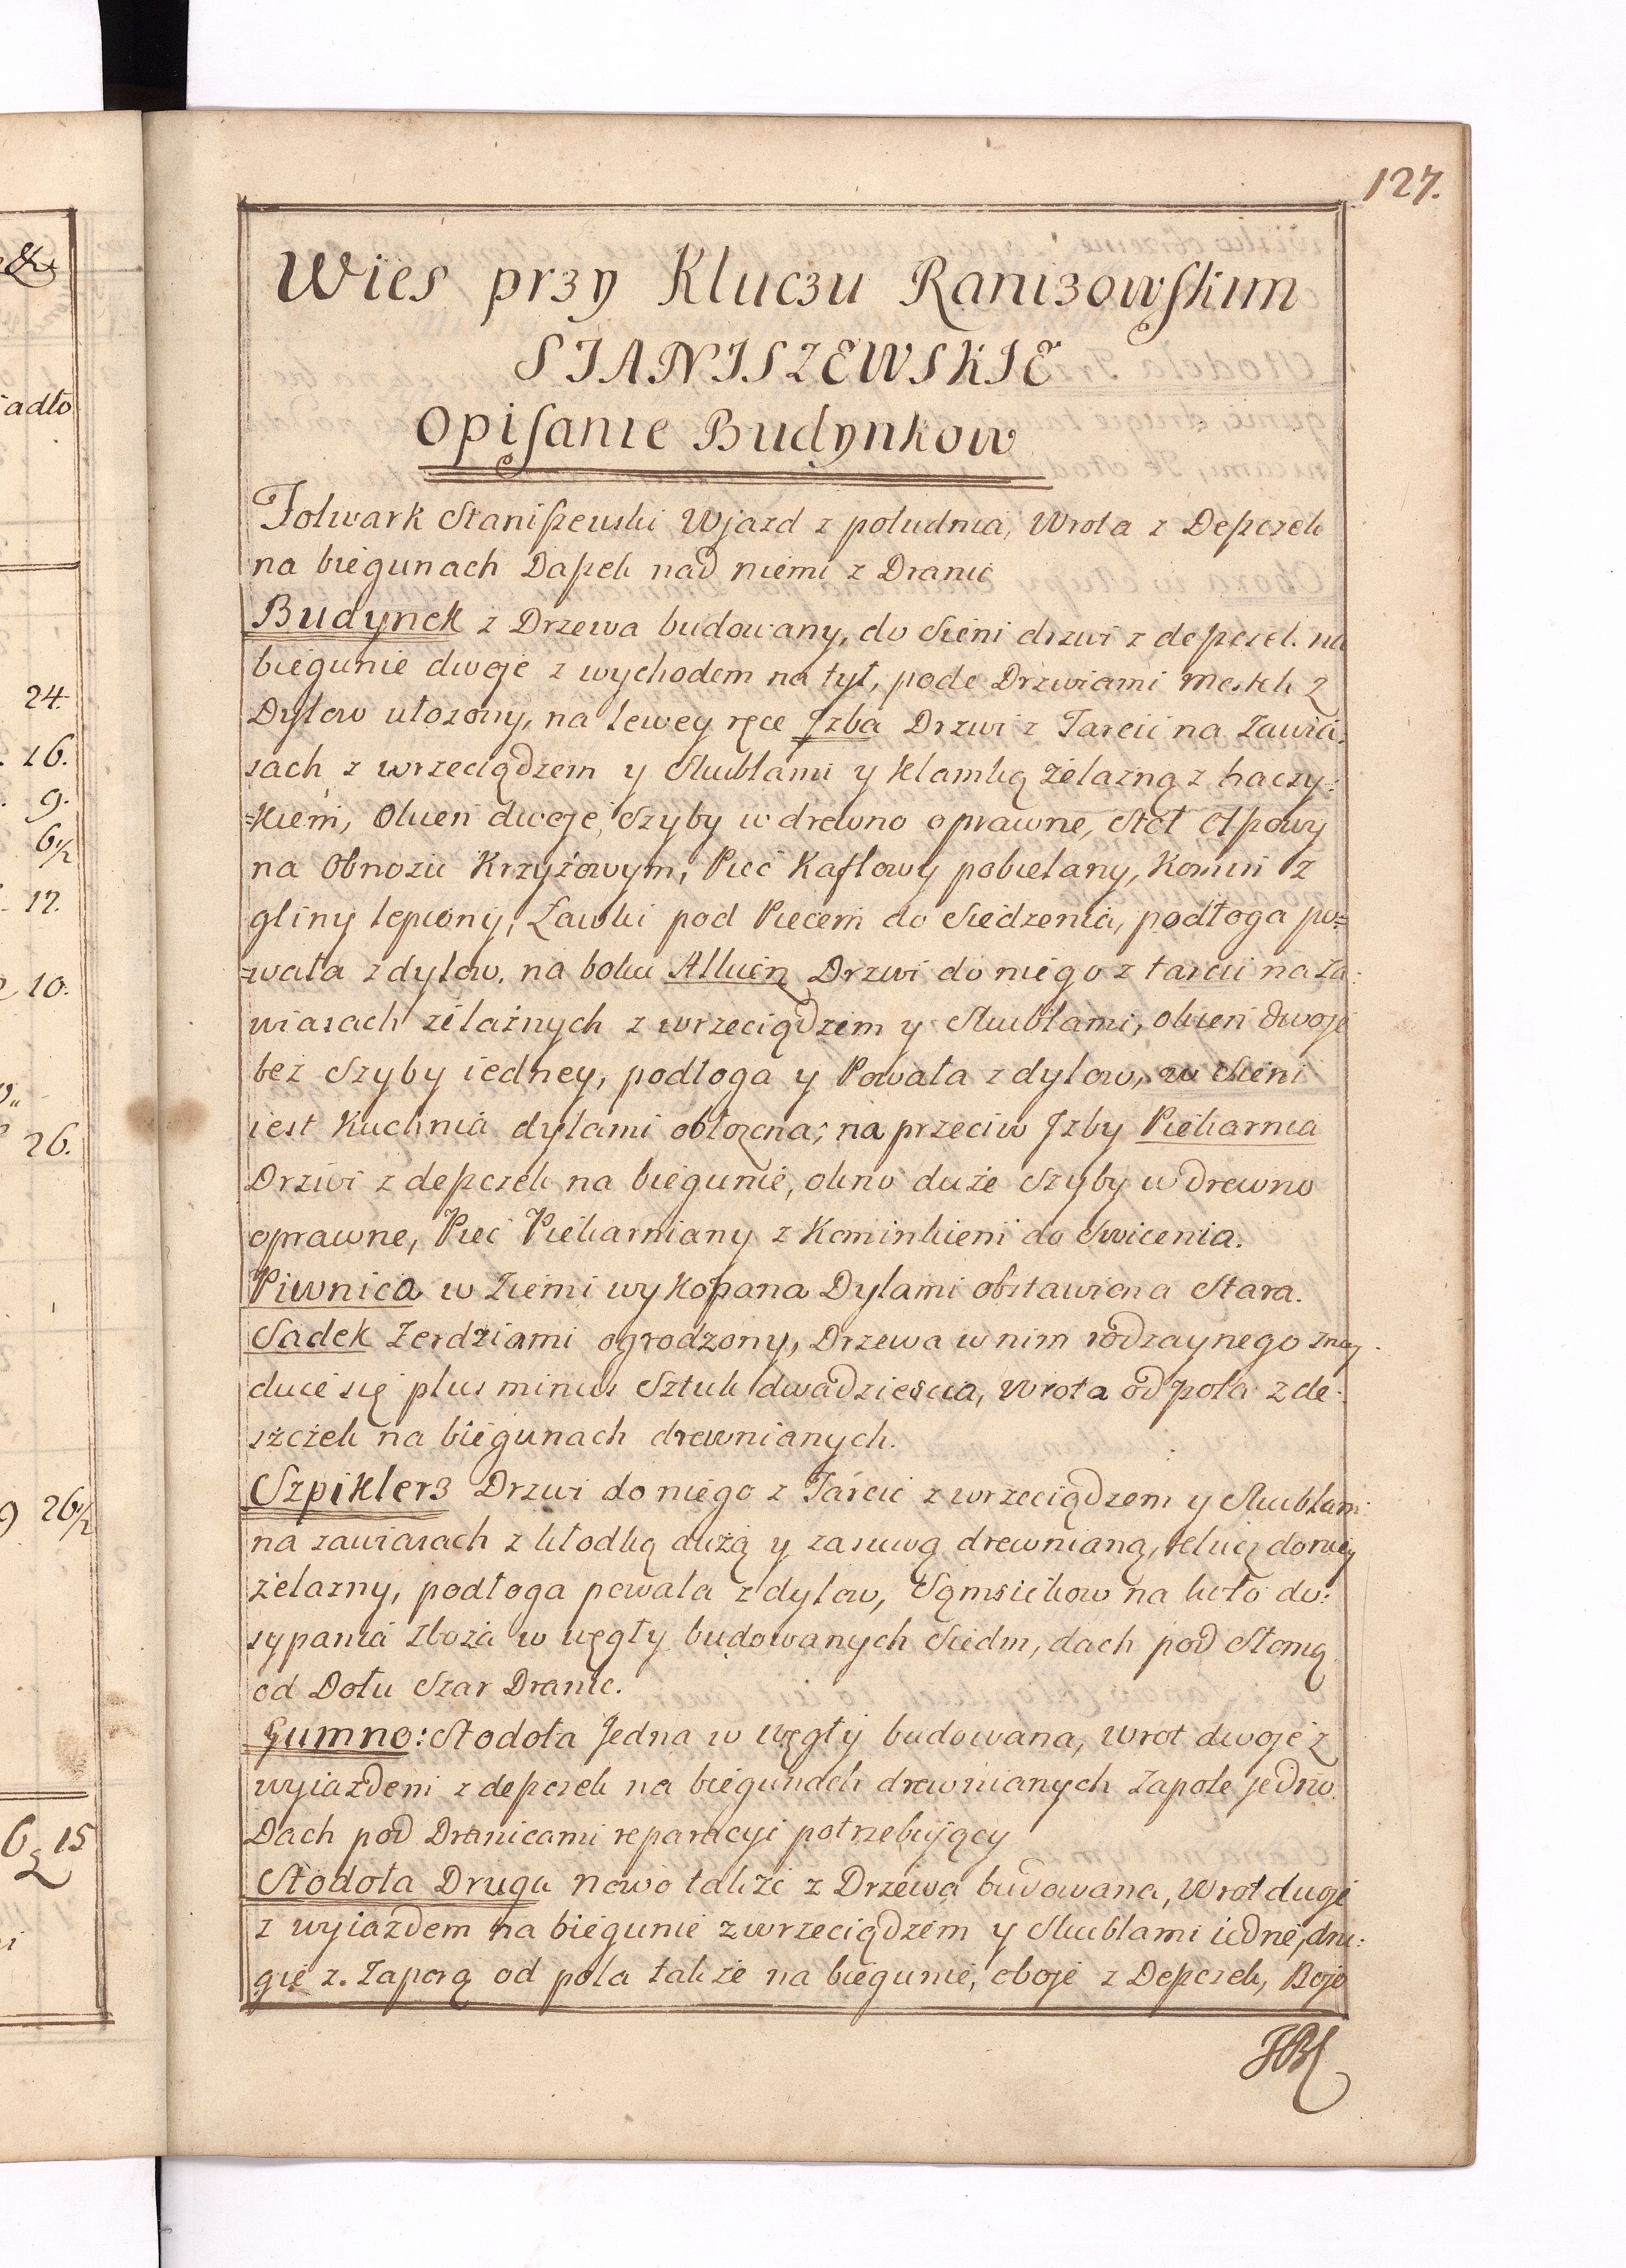 127.
Wies przy Kluczu Ranizowskim
STANISZEWSKIE
Opisanie Budynkow
Folwark Staniszewski Wjazd z południa, Wrota z Deszczek
na biegunach Daszek nad niemi z Dranic
Budynek z Drzewa budowany, do Sieni drzwi z deszczek na
biegunie dwoje z wychodem na tył, pode Drzwiami mostek z
Dylow ułozony, na lewey ręce Jzba Drzwi z Tarcic na Zawia:
sach z wrzeciądzem y Skublami y Klamką żelazną z haczy:
=kiem, Okien dwoje Szyby w drewno oprawne, Stoł
na Obnoziu Krzyżowym, Piec Kaflowy pobielany, Komin z
gliny lepiony, Ławki pod Piecem do Siedzenia, podłoga po=
=wała z dylow, na boku Alkierz Drzwi do niego z tarcic na Za:
wiasach żelaznych z wrzeciądzem y Skublami, okien dwoje
bez Szyby iedney, podłoga y Powała z dylow, w Sieni
iest Kuchnia dylami obłozona; na przeciw Jzby Piekarnia
Drzwi z deszczek na biegunie, okno duże Szyby w drewno
oprawne, Piec Piekarniany z Kominkiem do Swicenia.
Piwnica w Ziemi wykopana Dylami obstawiona Stara.
Sadek Zerdziami ogrodzony, Drzewa w nim rodzaynego znay
duie się plus minus Sztuk dwadziescia, Wrota od pola z de:
szczek na biegunach drewnianych.
Szpiklerz Drzwi do niego z Tarcic z wrzeciądzem y Skublami
na zawiasach z kłodką dużą y zasuwą drewnianą, klucz do niey
żelazny, podłoga powała z dylow, Sąmsiekow na koło do:
sypania Zboża w węgły budowanych Siedm, dach pod Słomą
od Dołu Szar Dranic.
Gumno: Stodoła Jedna w węgły budowana, Wrot dwoje z
wyiazdem z deszczek na biegunach drewnianych Zapole jedno
Dach pod Dranicami reparacyi potrzebujący
Stodola Druga nowo także z Drzewa budowana, Wrot dwoje
z wyiazdem na biegunie z wrzeciądzem y Skublami iedne, dru:
gie z Zaporą od pola także na biegunie, oboje z Deszczek, Bojo
adło
24.
16.
9.
6½
17.
10.
26.
26½
15